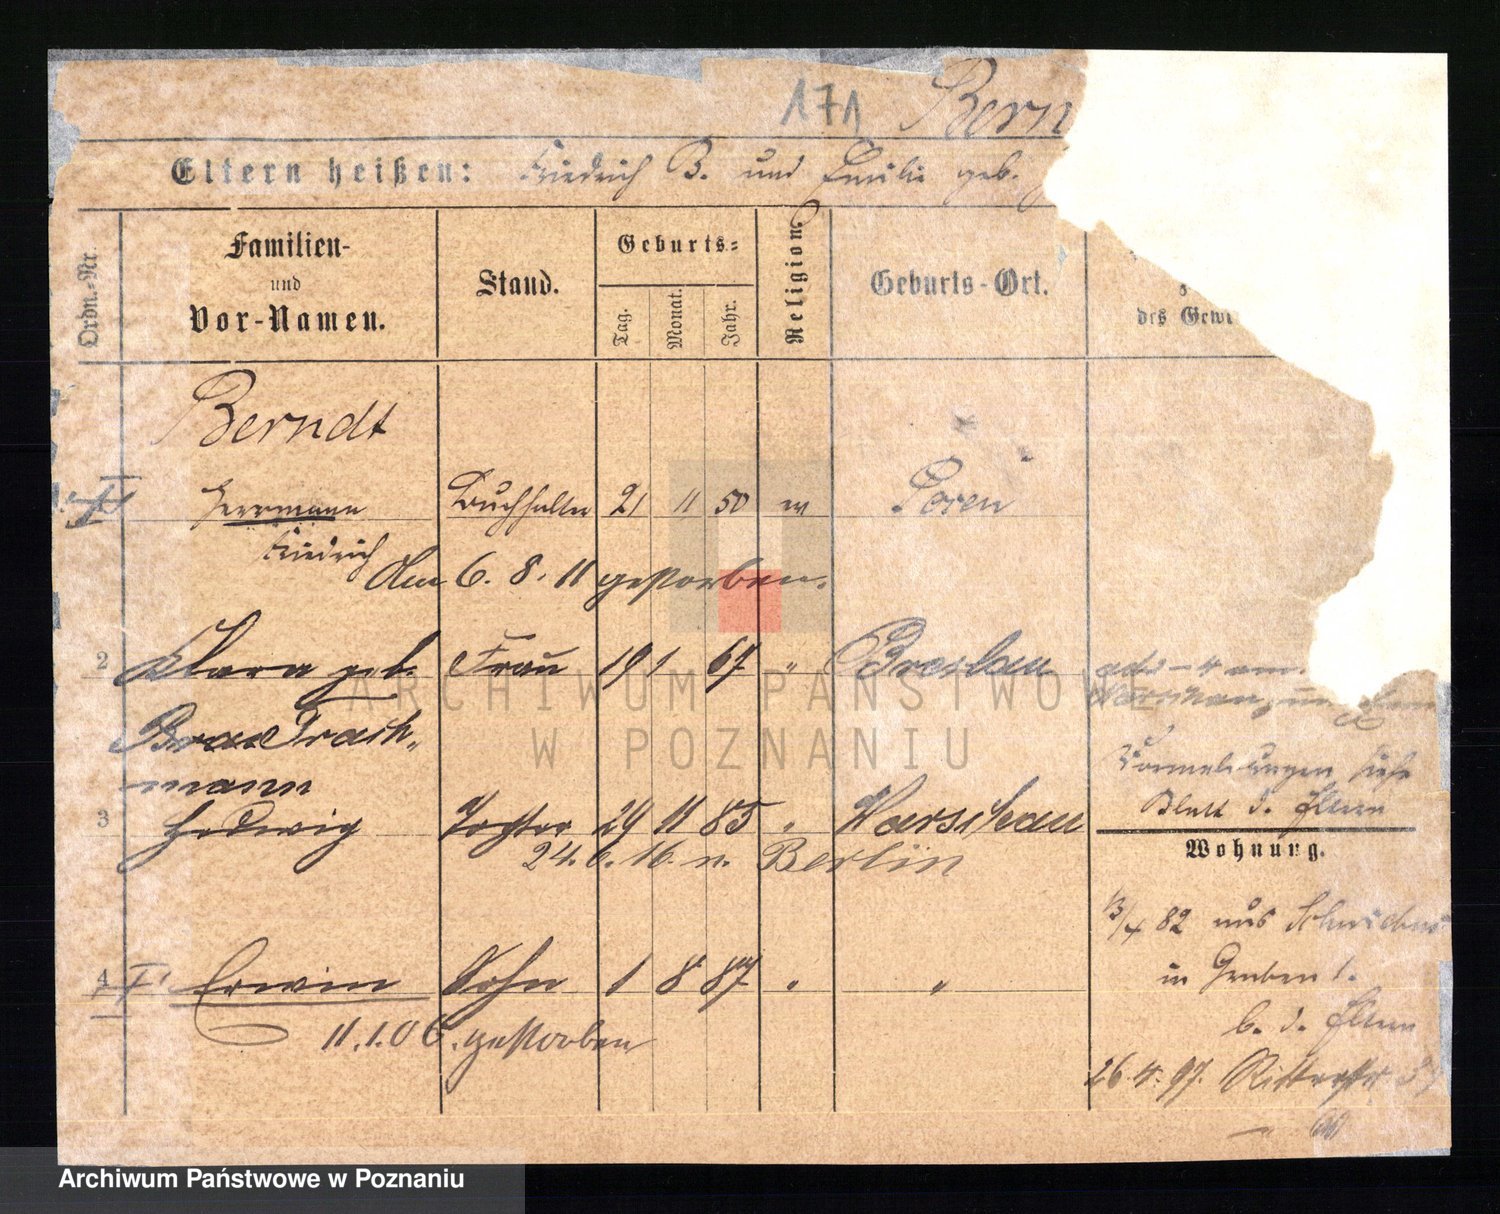 171 Bern
Eltern heißen: Friedrich B. und Emilie geb.
Ordn.-Nr.
Familien-
und
Vor-Namen.
Stand.
Geburts-
Tag.
Monat.
Jahr.
Religion.
Geburts-Ort.
des Gewe
Berndt
Herrmann Buchhalter 21 11 50 ev Posen
Friedrich
Am 6. 8. 11 gestorben.
2 Klara geb. Frau 19 1 67 " Breslau
Warschau
Trach-
mann
Vormeldungen siehe
Blatt d. Eltern
3 Hedwig Tochter 24 11 85 " Warschau
24. 6. 16 n. Berlin
Wohnung.
82 aus
in Graben 1.
b. d. Eltern
4 Erwin Sohn 1 8 87 " "
11. 1. 06. gestorben
26. 4. 97. Ritterstr
ARCHIWUM PAŃSTWOWE
W POZNANIU
Archiwum Państwowe w Poznaniu